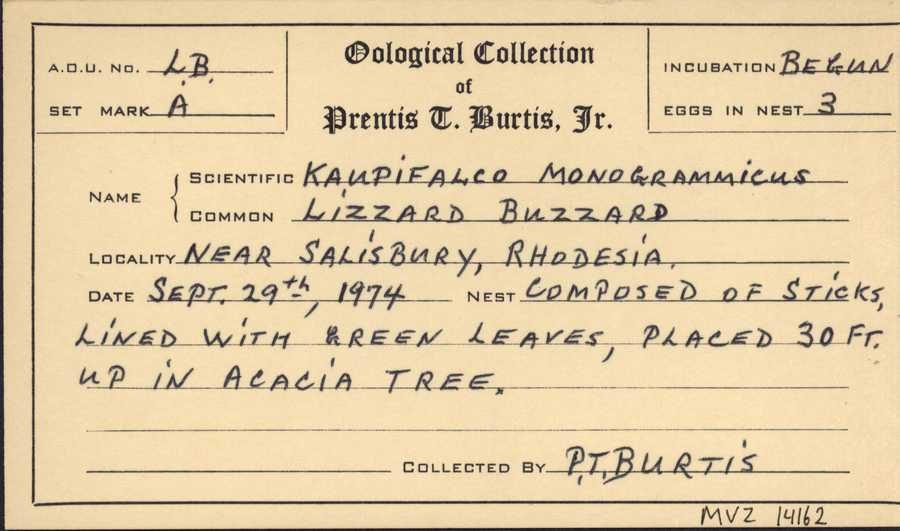 Oological Collection
of
Prentis T. Burtis, Jr.
A.O.U. No. L.B.
SET MARK A
INCUBATION BEGUN
EGGS IN NEST 3
NAME
SCIENTIFIC KAUPIFALCO MONOGRAMMICUS
COMMON LIZZARD BUZZARD
LOCALITY NEAR SALISBURY, RHODESIA.
DATE SEPT. 29th, 1974 NEST COMPOSED OF STICKS,
LINED WITH GREEN LEAVES, PLACED 30 FT.
UP IN ACACIA TREE.
COLLECTED BY P.T. BURTIS
MVZ 14162